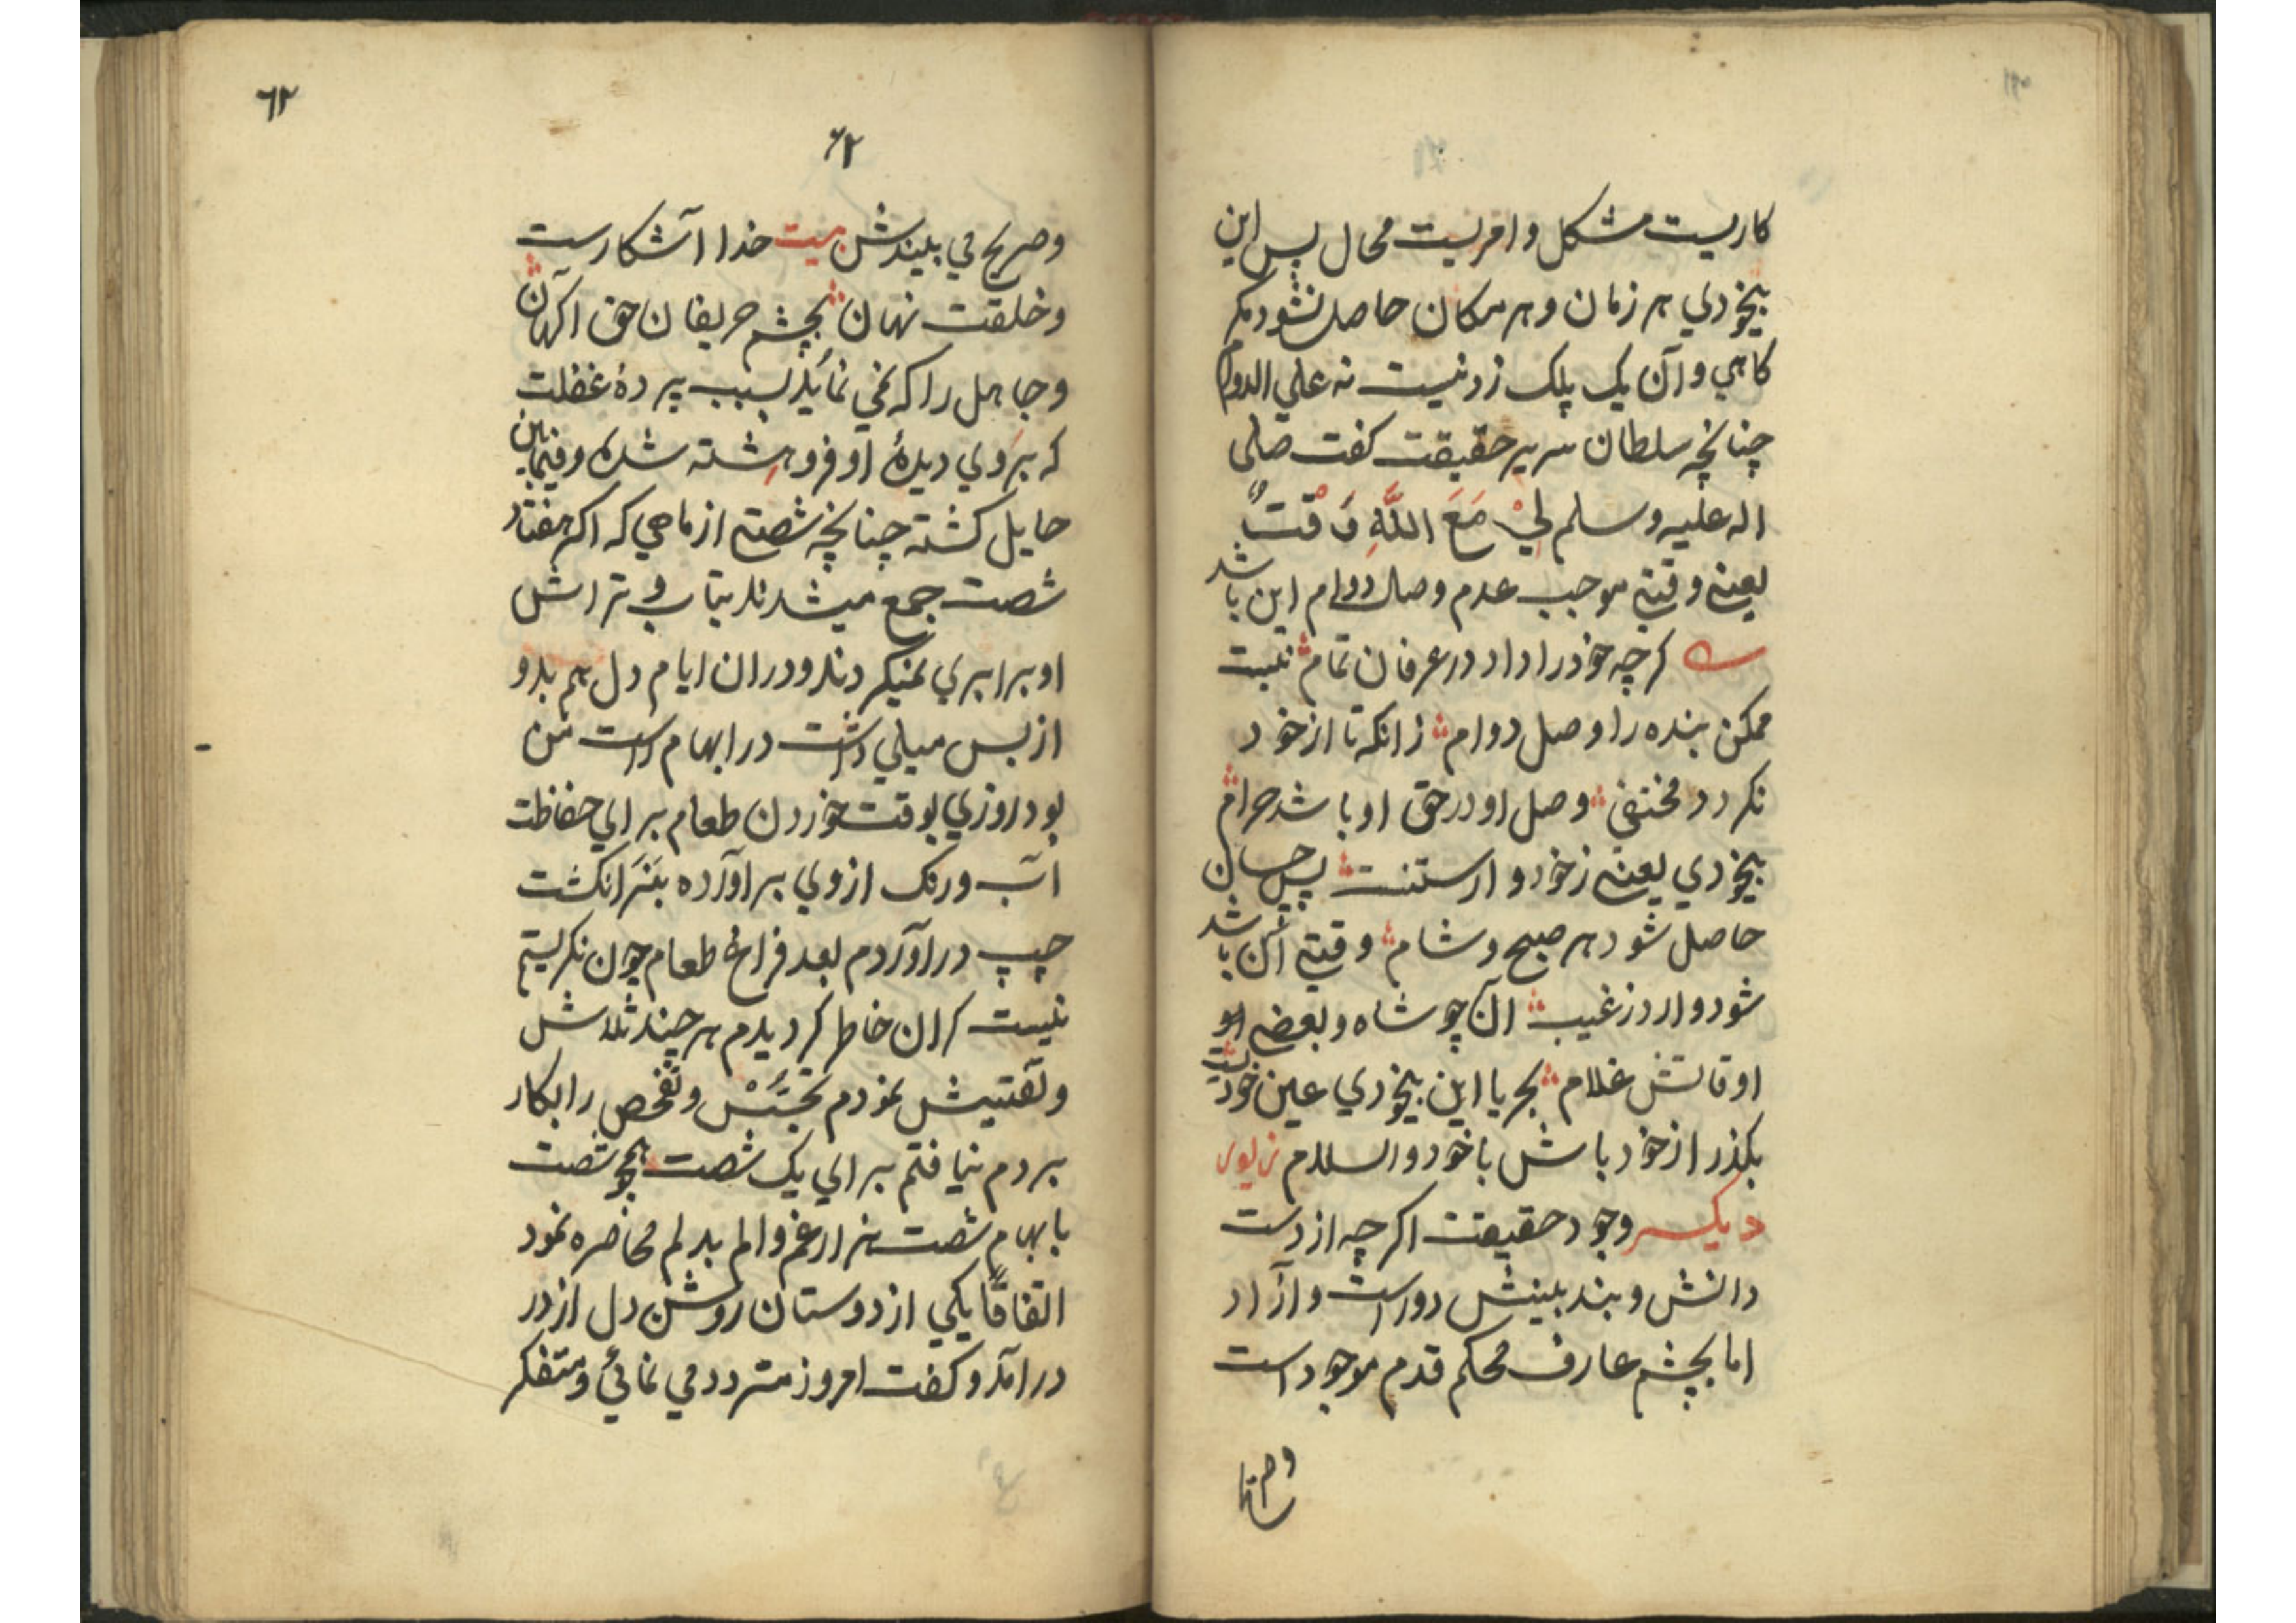 کاریست مشکل و امریست محال پس این
بیخودي هر زمان و هر مکان حاصل نشود مکر
کاهي و آن یک پلک زدنیست نه علي الدوام
چنانچه سلطان سریر حقیقت کفت صلی
اله علیه وسلم لِيْ مَعَ اللَّهِ وَقْتٌ
یعني وقتي موجب عدم وصال دوام این باشد
کرچه خود را داد در عرفان تمام نیست
ممکن بنده را وصل دوام زانکه تا از خود
نکردد مختفي وصل او در حق او باشد حرام
بیخودي یعني ز خود وارستنست پس چسان
حاصل شود هر صبح و شام وقتي آن باشد
شود وارد ز غیب آن چو شاه و بعضي
اوقاتش غلام بحریا این بیخودي عین خودیست
بکذر از خود باش با خود والسلام
دیکر وجود حقیقت اکرچه از دست
دانش و بند بینش دور است و آزاد
اما بچشم عارف محکم قدم موجود است
٦٢
۶۲
وصریح مي بیندش بیت خدا آشکارست
و خلقت نهان بچشم حریفان حق اکهان
و جاهل را که نمي نماید بسبب پردۀ غفلت
که بروي دیدۀ او فروهشته شده و فیمابین
حایل کشته چنانچه شصتي از ماهي که اکر هفتاد
شصت جمع میشدند بتاب و تراش
او برابري نمیکردند و دران ایام دل هم بدو
از بس میلي داشت در ابهام راست من
بود روزي بوقت خوردن طعام براي حفاظت
آب و رنک ازوي براورده بنر انکشت
چپ دراوردم بعد فراغ طعام چون نکریستم
نیست کران خاطر کردیدم هر چند تلاش
و تفتیش نمودم تجسّس و تفحص را بکار
بردم نیافتم براي یک شصت همچو شصت
بابهام شصت هزار غم و الم بدلم محاصره نمود
اتفاقًا یکي از دوستان روشن دل از در
درامد و کفت امروز متردد مي نمائي و متفکر